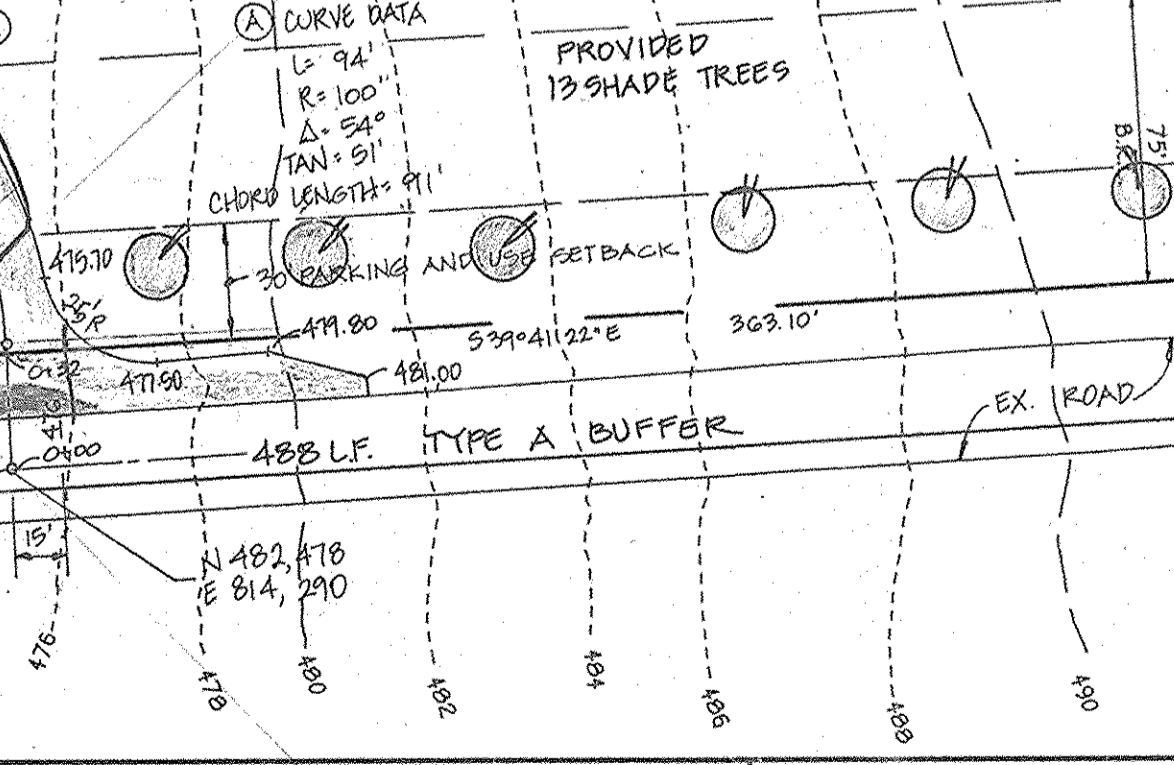 A CURVE DATA
L= 94'
R= 100'
Δ= 54°
TAN = 51'
CHORD LENGTH = 91'
PROVIDED
13 SHADE TREES
75'
475.70
25'R
30' PARKING AND USE SETBACK
479.80
S39°41'22"E
363.10'
0+32
477.50
481.00
EX. ROAD
476
0+00
488 L.F. TYPE A BUFFER
15'
N 482,478
E 814, 290
476
478
480
482
484
486
488
490